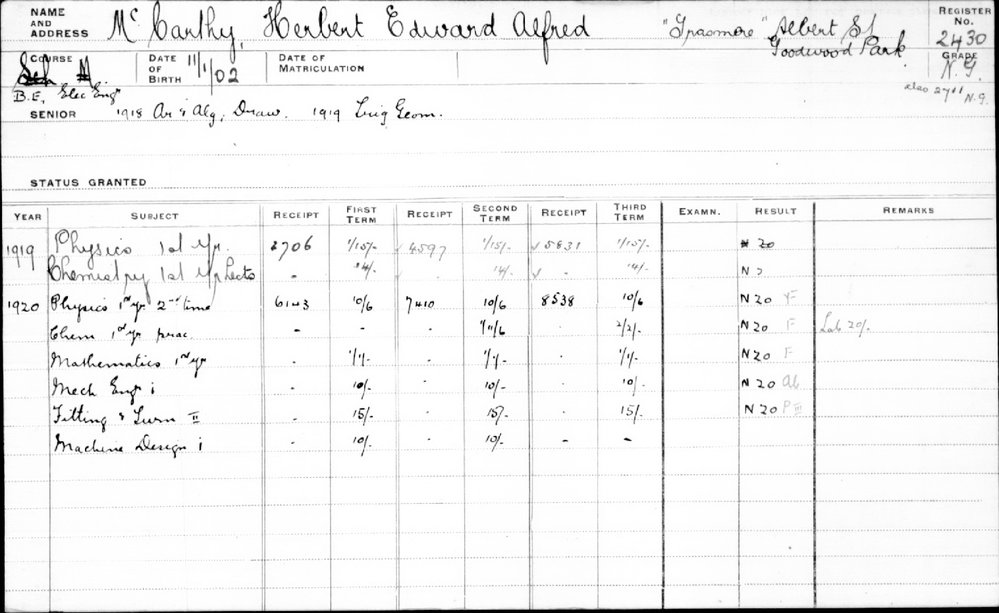 NAME AND ADDRESS McCarthy, Herbert Edward Alfred "Grasmere" Albert St Goodwood Park REGISTER No. 2430
COURSE M DATE OF BIRTH 11/1/02 DATE OF MATRICULATION GRADE N.G.
B.E, Elec Engg also 2711 N.G.
SENIOR 1918 Ar & Alg, Draw. 1919 Trig Geom.
STATUS GRANTED
YEAR SUBJECT RECEIPT FIRST TERM RECEIPT SECOND TERM RECEIPT THIRD TERM EXAMN. RESULT REMARKS
1919 Physics 1st yr. 2706 1/15/- 4597 1/15/- 5831 1/15/- N 20
Chemistry 1st yr Lects - 14/- . 14/- 14/- N
1920 Physics 1st yr. 2nd time 6143 10/6 7410 10/6 8538 10/6 N 20 F
Chem 1st yr prac. - - . 1/11/6 . 2/2/- N 20 F Lab 20/-
Mathematics 1st yr - 1/1/- . 1/1/- . 1/1/- N 20 F
Mech Engg i - 10/- . 10/- . 10/- N 20 Ab
Fitting & Turn II - 15/- . 15/- . 15/- N 20 P III
Machine Design i - 10/- 10/- - -